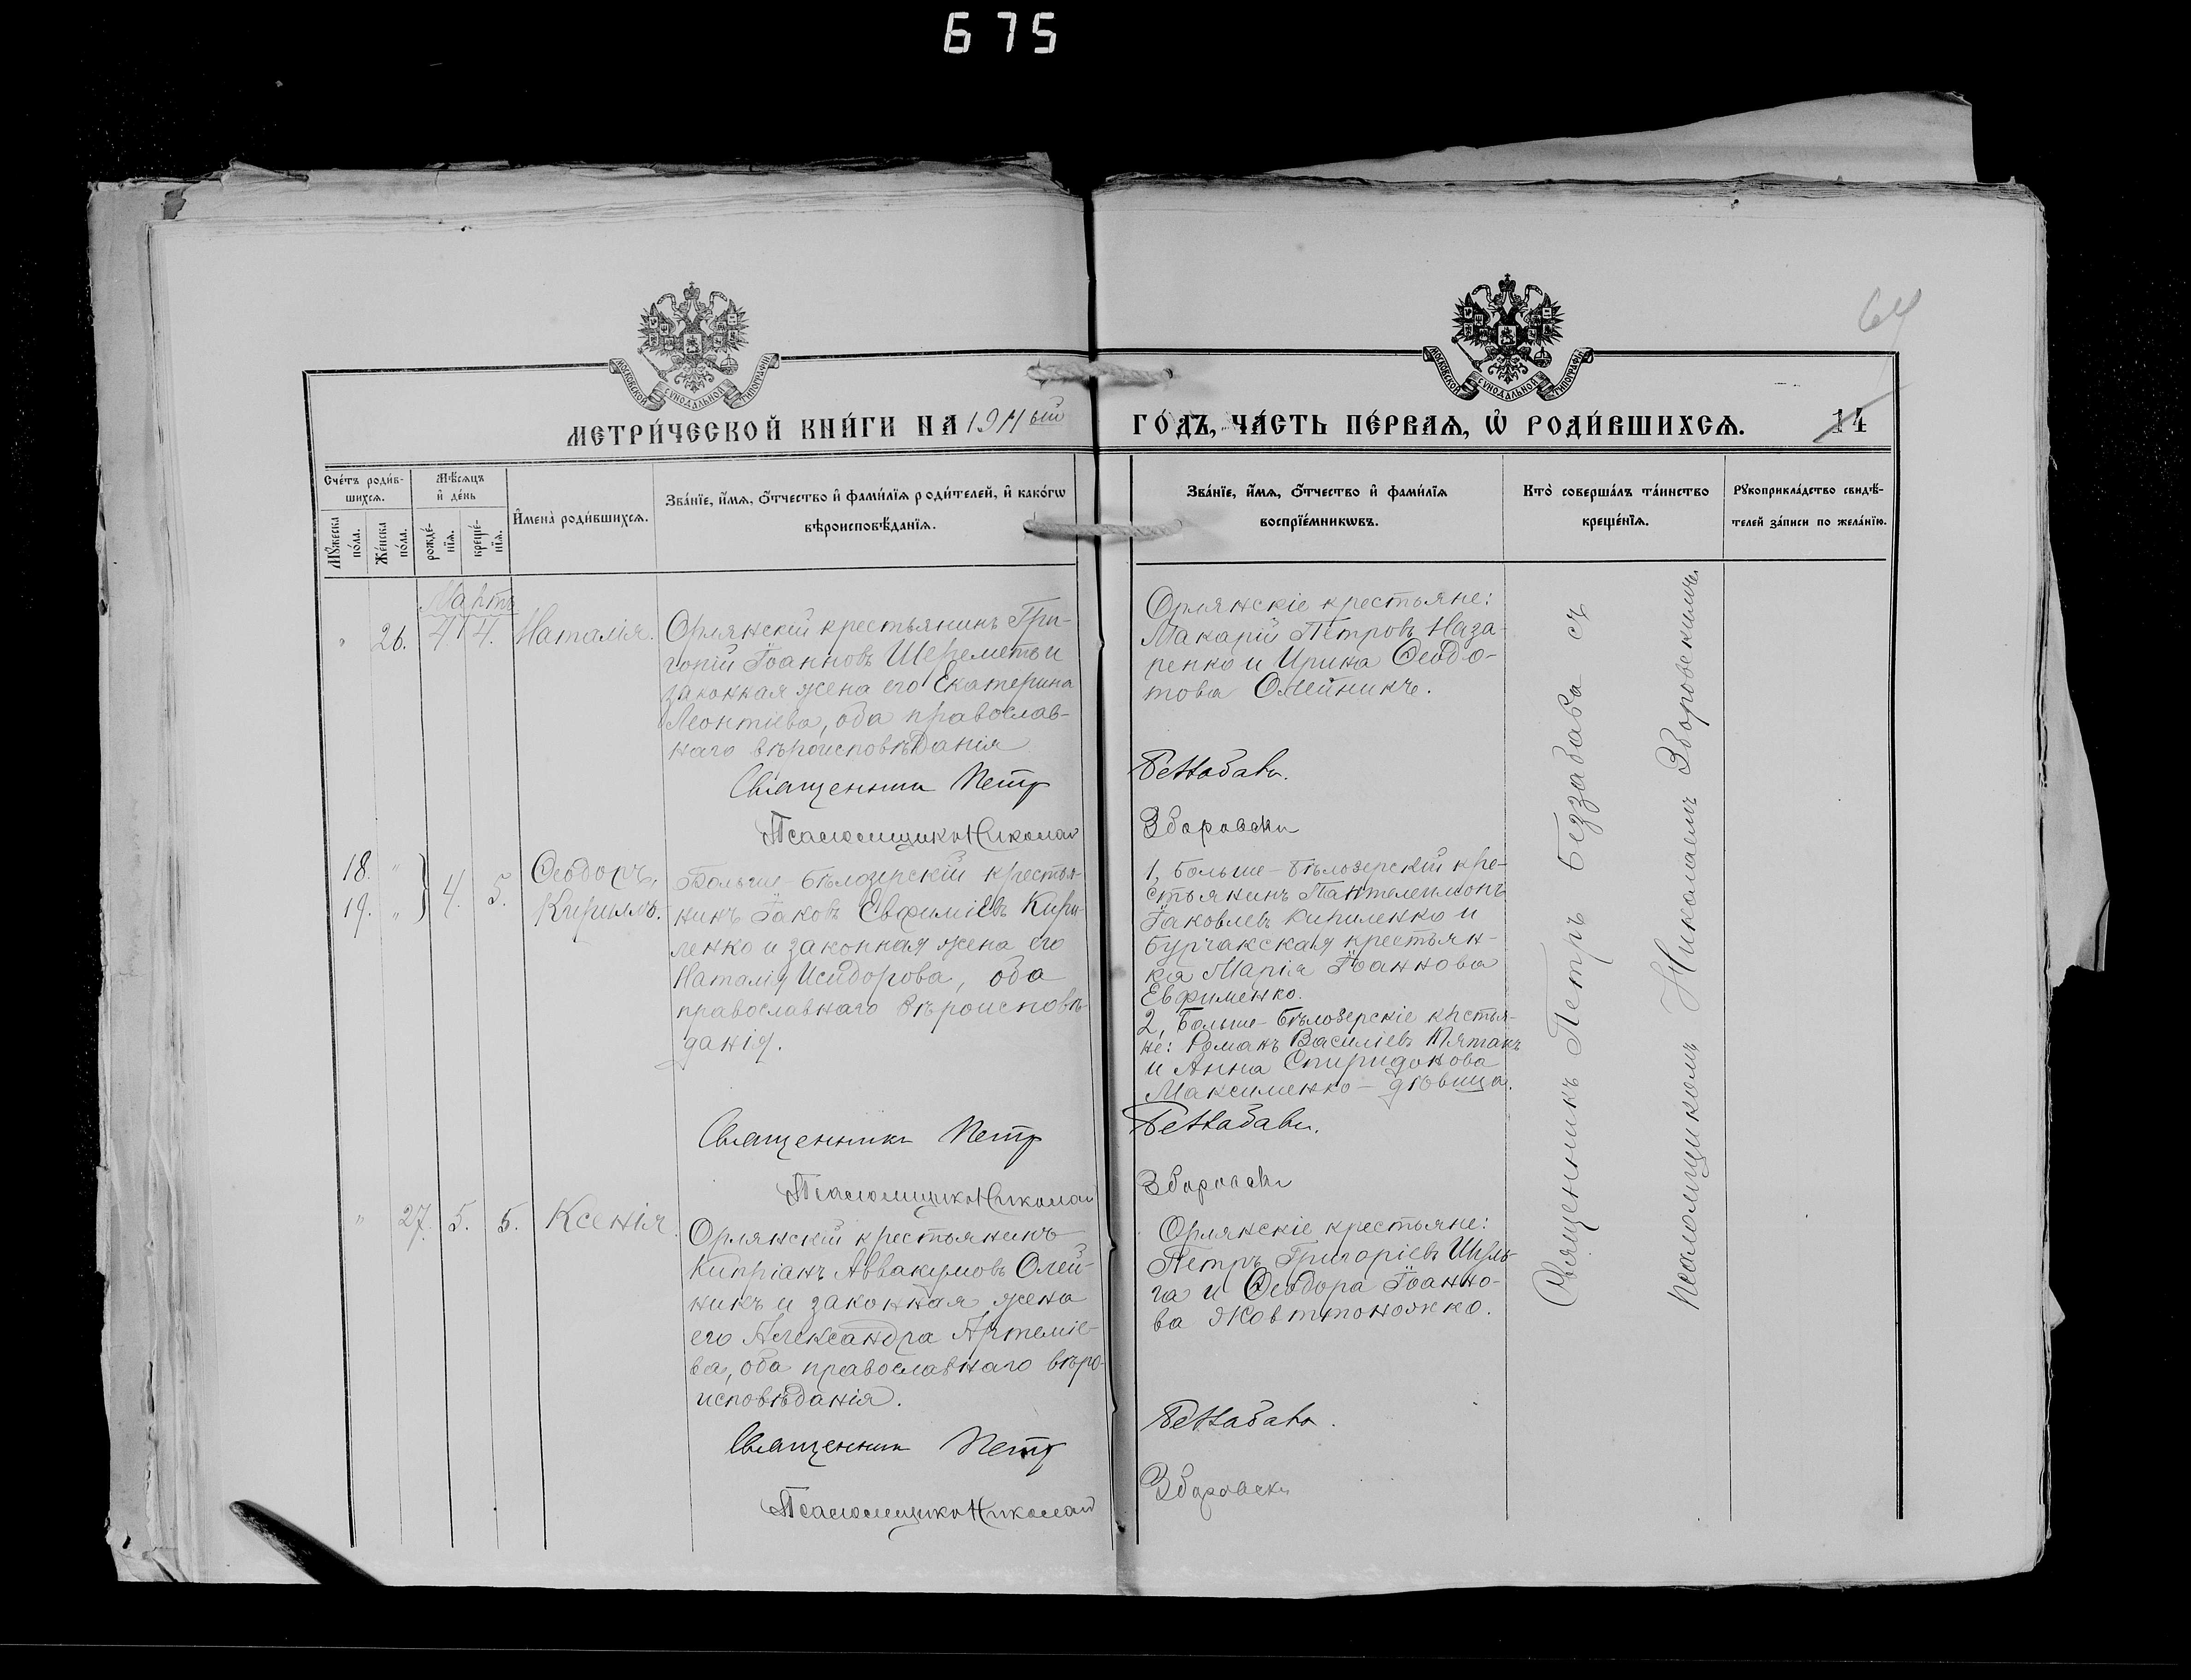 675
64
МОСКОВСКОЙ СѴНОДАЛЬНОЙ ТИПОГРАФІИ
МОСКОВСКОЙ СѴНОДАЛЬНОЙ ТИПОГРАФІИ
МЕТРИ́ЧЕСКОЙ КНИ́ГИ НА 1911ый
ГО́ДЪ, ЧА́СТЬ ПЕ́РВАѦ, Ѡ҆ РОДИ́ВШИХСѦ.
14
Сче́тъ роди́в-
шихсѧ.
Мꙋ́жеска
по́ла.
Же́нска
по́ла.
Мѣ́сѧцъ
и҆ де́нь
рожде́-
нїѧ.
креще́-
нїѧ.
И҆мена̀ роди́вшихсѧ.
Зва́нїе, и҆́мѧ, ѻ҆́тчество и҆ фами́лїѧ роди́телей, и҆ како́гѡ
вѣроисповѣ́данїѧ.
Зва́нїе, и҆́мѧ, ѻ҆́тчество и҆ фами́лїѧ
воспрїе́мникѡвъ.
Кто̀ соверша́лъ та́инство
креще́нїѧ.
Рꙋкоприкла́дство свидѣ́-
телей за́писи по жела́нїю.
Мартъ
" 26. 4. 4. Наталія.
Орлянскій крестьянинъ Гри-
горій Іоанновъ Шереметъ и
законная жена его Екатерина
Леонтіева, оба православ-
наго вѣроисповѣданія
Священник Петр
Псаломщикъ Николай
Орлянскіе крестьяне:
Макарій Петровъ Наза-
ренко и Ирина Ѳеодо-
това Олейникъ.
Беззабава.
Зборовски
18. "
19. "
4. 5.
Ѳеодоръ,
Кириллъ.
Больше-Бѣлозерскій крестья-
нинъ Іаковъ Евфиміевъ Кири-
ленко и законная жена его
Наталія Исидорова, оба
православнаго вѣроисповѣ-
данія.
Священникъ Петр
Псаломщикъ Николай
1, Больше-Бѣлозерскій кре-
стьянинъ Пантелеимонъ
Іаковлевъ Кириленко и
Бурчакская крестьян-
ка Марія Іоаннова
Евфименко.
2, Больше-Бѣлозерскіе крстья-
не: Романъ Василіевъ Пятакъ
и Анна Спиридонова
Максименко - дѣвица.
Беззабава.
Зборовски
" 27. 5. 5. Ксенія.
Орлянскій крестьянинъ
Кипріанъ Аввакумовъ Олей-
никъ и законная жена
его Александра Артеміе-
ва, оба православнаго вѣро-
исповѣданія.
Священник Петр
Псаломщикъ Николай
Орлянскіе крестьяне:
Петръ Григоріевъ Шуль-
га и Ѳеодора Іоанно-
ва Жовтоножко.
Беззабава.
Зборовски
Священникъ Петръ Беззабава съ
псаломщикомъ Николаемъ Зборовскимъ.